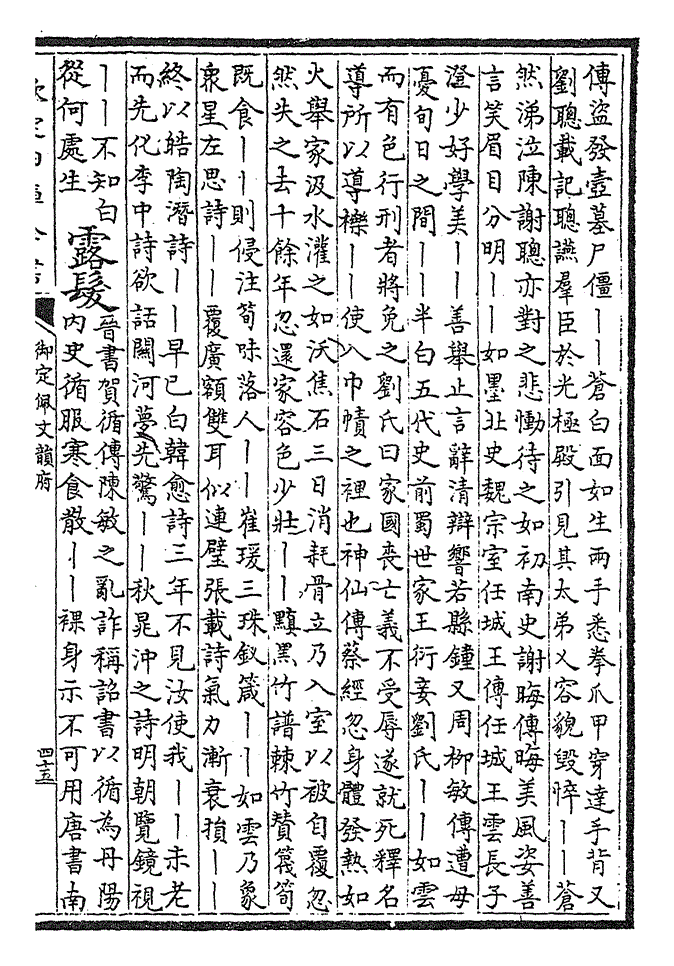 傳盜發壼墓尸僵丨丨蒼白面如生兩手悉拳爪甲穿達手背又
劉聰載記聰讌羣臣於光極殿引見其太弟乂容貌毀悴丨丨蒼
然涕泣陳謝聰亦對之悲慟待之如初南史謝晦傳晦美風姿善
言笑眉目分明丨丨如墨北史魏宗室任城王傳任城王雲長子
澄少好學美丨丨善舉止言辭清辯響若縣鐘又周柳敏傳遭母
憂旬日之間丨丨半白五代史前蜀世家王衍妾劉氏丨丨如雲
而有色行刑者將免之劉氏曰家國喪亡義不受辱遂就死釋名
導所以導櫟丨丨使入巾幘之裡也神仙傳蔡經忽身體發熱如
火舉家汲水灌之如沃焦石三日消耗骨立乃入室以被自覆忽
然失之去十餘年忽還家容色少壯丨丨黰黑竹譜棘竹贊篾筍
既食丨丨則侵注筍味落人丨丨崔瑗三珠釵箴丨丨如雲乃象
衆星左思詩丨丨覆廣額雙耳似連璧張載詩氣力漸衰損丨丨
終以皓陶潛詩丨丨早已白韓愈詩三年不見汝使我丨丨未老
而先化李中詩欲話關河夢先驚丨丨秋晁沖之詩明朝覽鏡視
丨丨不知白
從何處生
露髮
晉書賀循傳陳敏之亂詐稱詔書以循為丹陽
內史循服寒食散丨丨裸身示不可用唐書南
御定佩文韻府
四十五